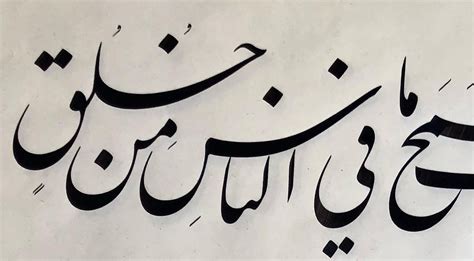 ما في الناسِ مِن خُلُقٍ